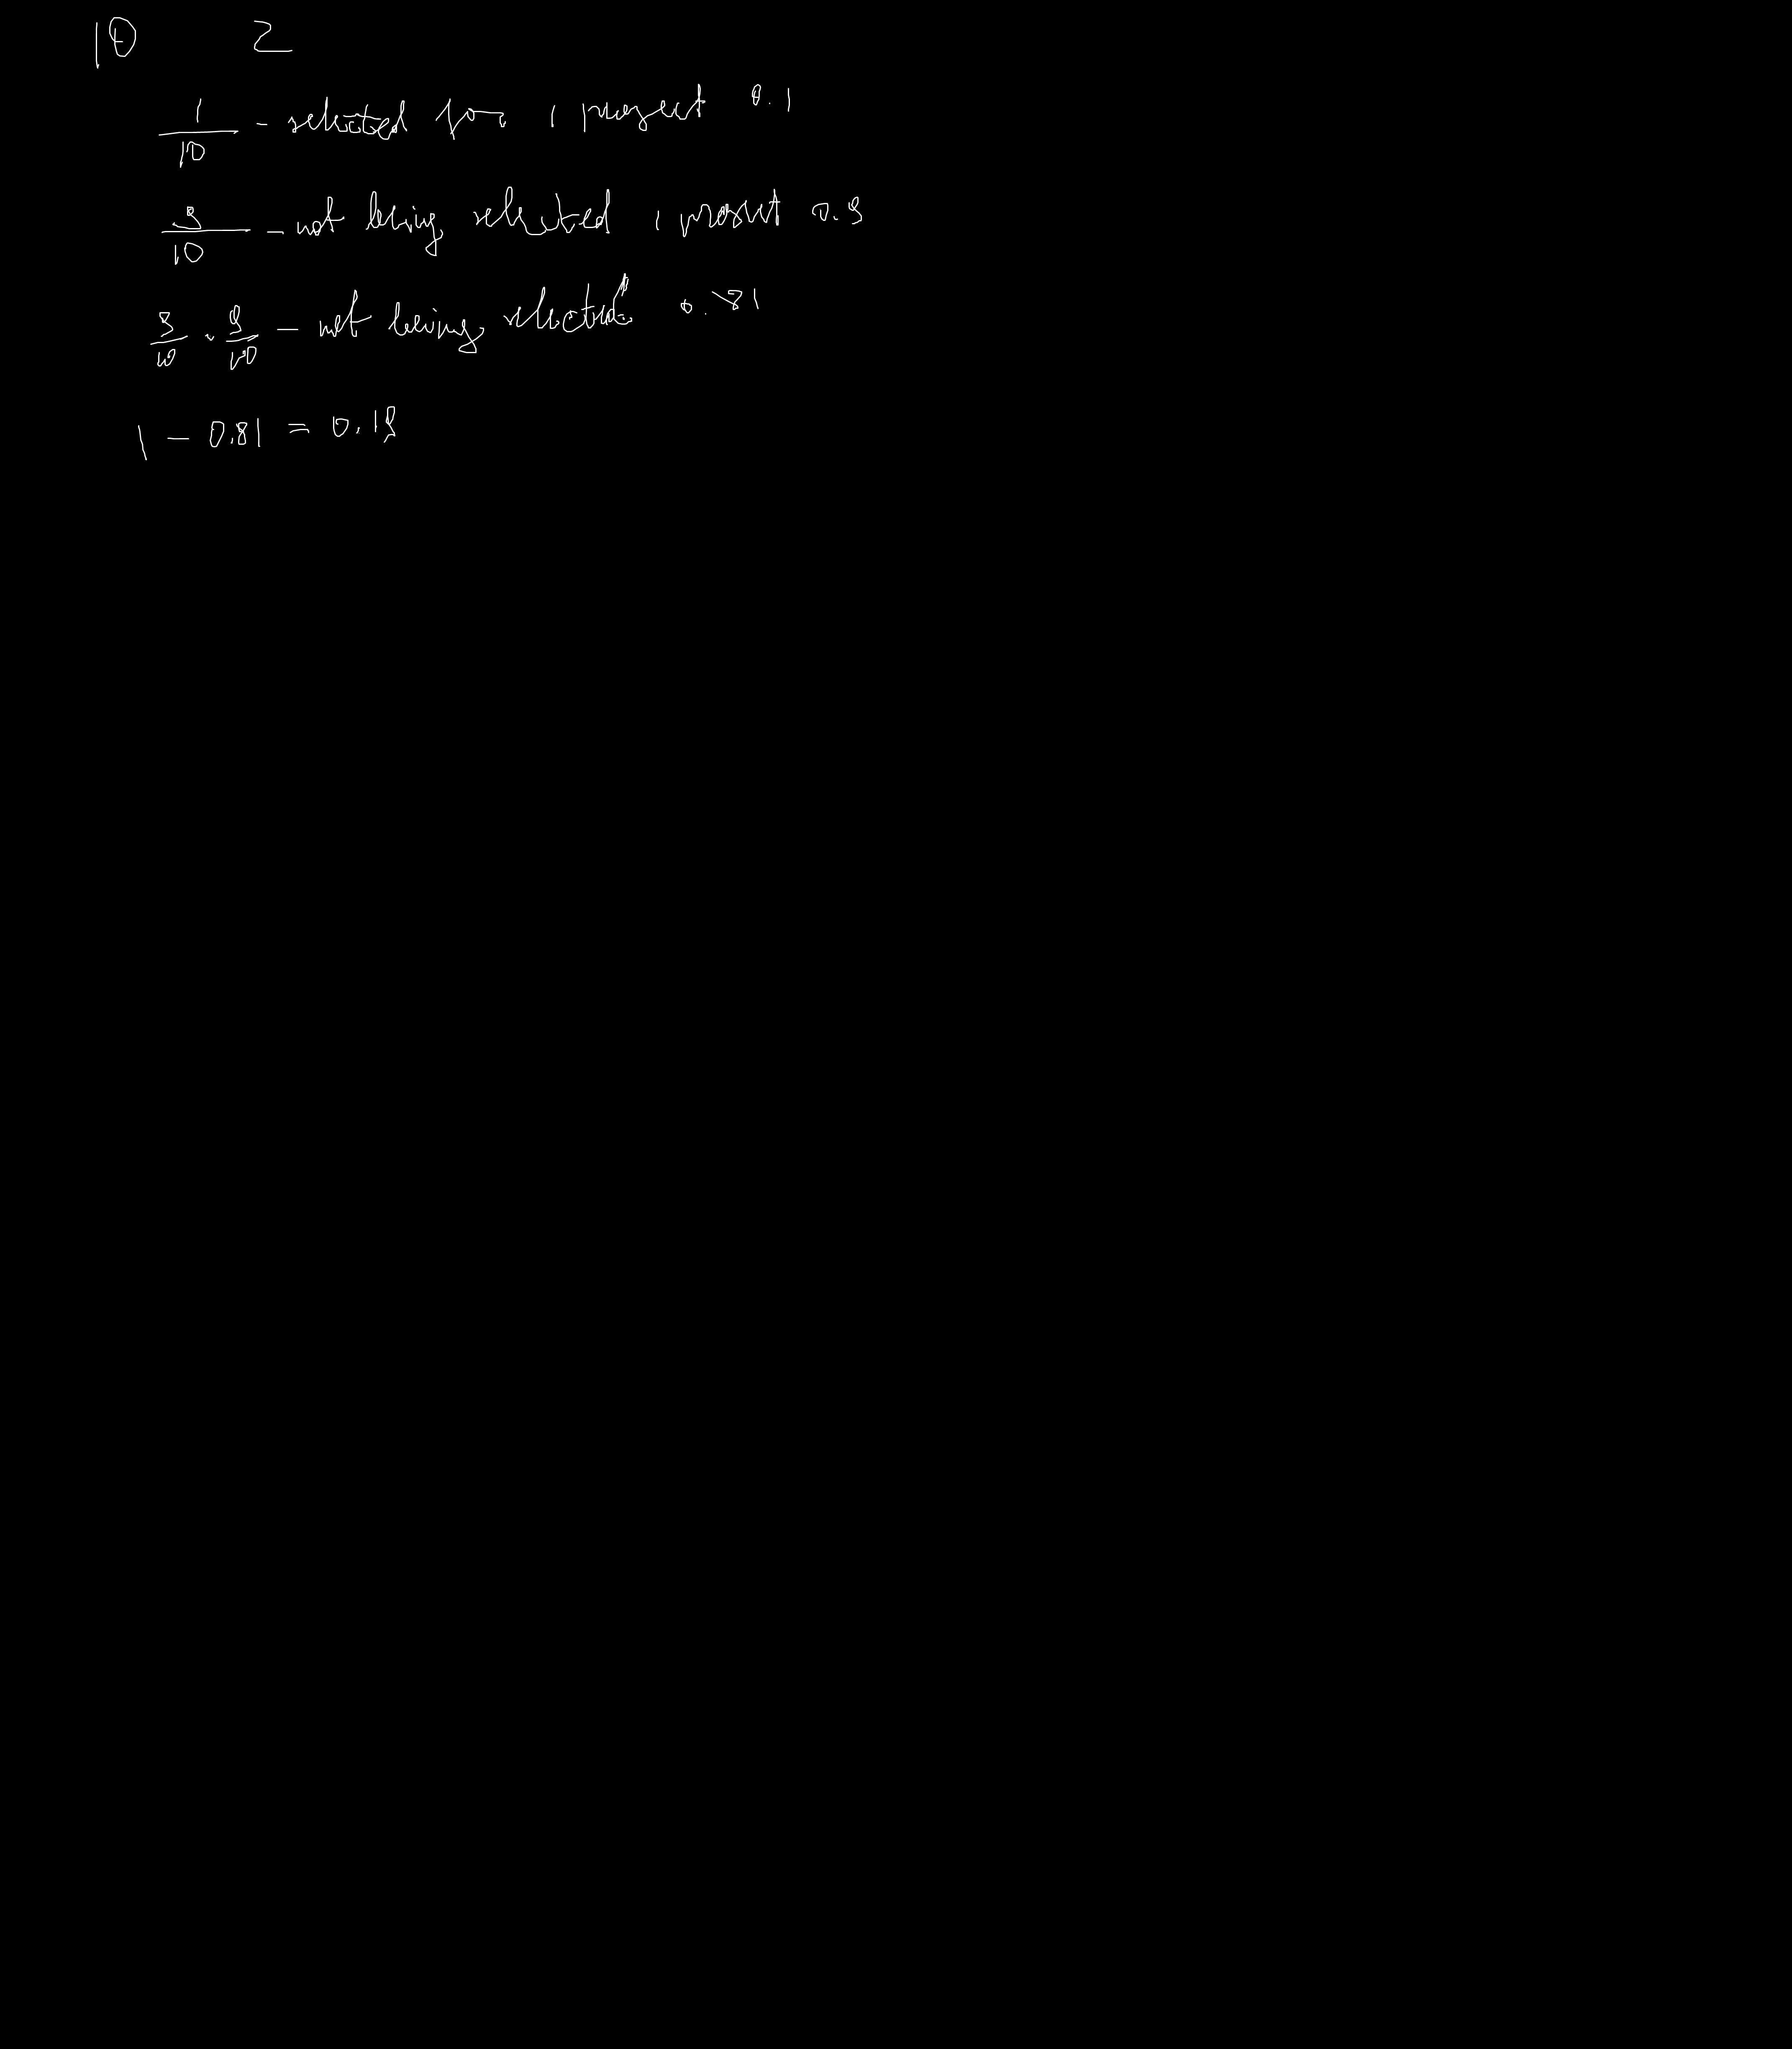 10 2
1/10 - selected for 1 present 0.1
9/10 - not being selected 1 present 0.9
9/10 · 9/10 - not being selected 0.81
1 - 0.81 = 0.19